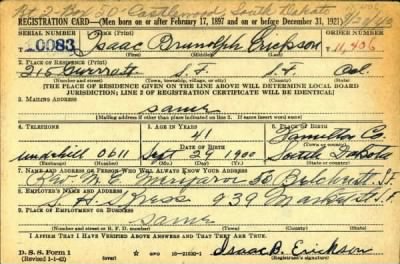 Rt 2 Box South Dakota
REGISTRATION CARD—(Men born on or after February 17, 1897 and on or before December 31, 1921)
SERIAL NUMBER 1. NAME (Print) ORDER NUMBER
10083 Isaac Brunolph Erickson 11,406
(First) (Middle) (Last)
2. PLACE OF RESIDENCE (Print)
216 S.F. S.F. Cal.
(Number and street) (Town, township, village, or city) (County) (State)
[THE PLACE OF RESIDENCE GIVEN ON THE LINE ABOVE WILL DETERMINE LOCAL BOARD
JURISDICTION; LINE 2 OF REGISTRATION CERTIFICATE WILL BE IDENTICAL]
3. MAILING ADDRESS
same
[Mailing address if other than place indicated on line 2. If same insert word same]
4. TELEPHONE 5. AGE IN YEARS 6. PLACE OF BIRTH
41 Hamilton Co
DATE OF BIRTH (Town or county)
Underhill 0611 Sept 24 1900 South Dakota
(Exchange) (Number) (Mo.) (Day) (Yr.) (State or country)
7. NAME AND ADDRESS OF PERSON WHO WILL ALWAYS KNOW YOUR ADDRESS
50 S.F.
8. EMPLOYER'S NAME AND ADDRESS
H. S. Kress 939 Market St S.F.
9. PLACE OF EMPLOYMENT OR BUSINESS
same
(Number and street or R. F. D. number) (Town) (County) (State)
I AFFIRM THAT I HAVE VERIFIED ABOVE ANSWERS AND THAT THEY ARE TRUE.
D. S. S. Form 1 GPO 16—21630-1 Isaac B. Erickson
(Revised 1-1-42) (over) (Registrant's signature)